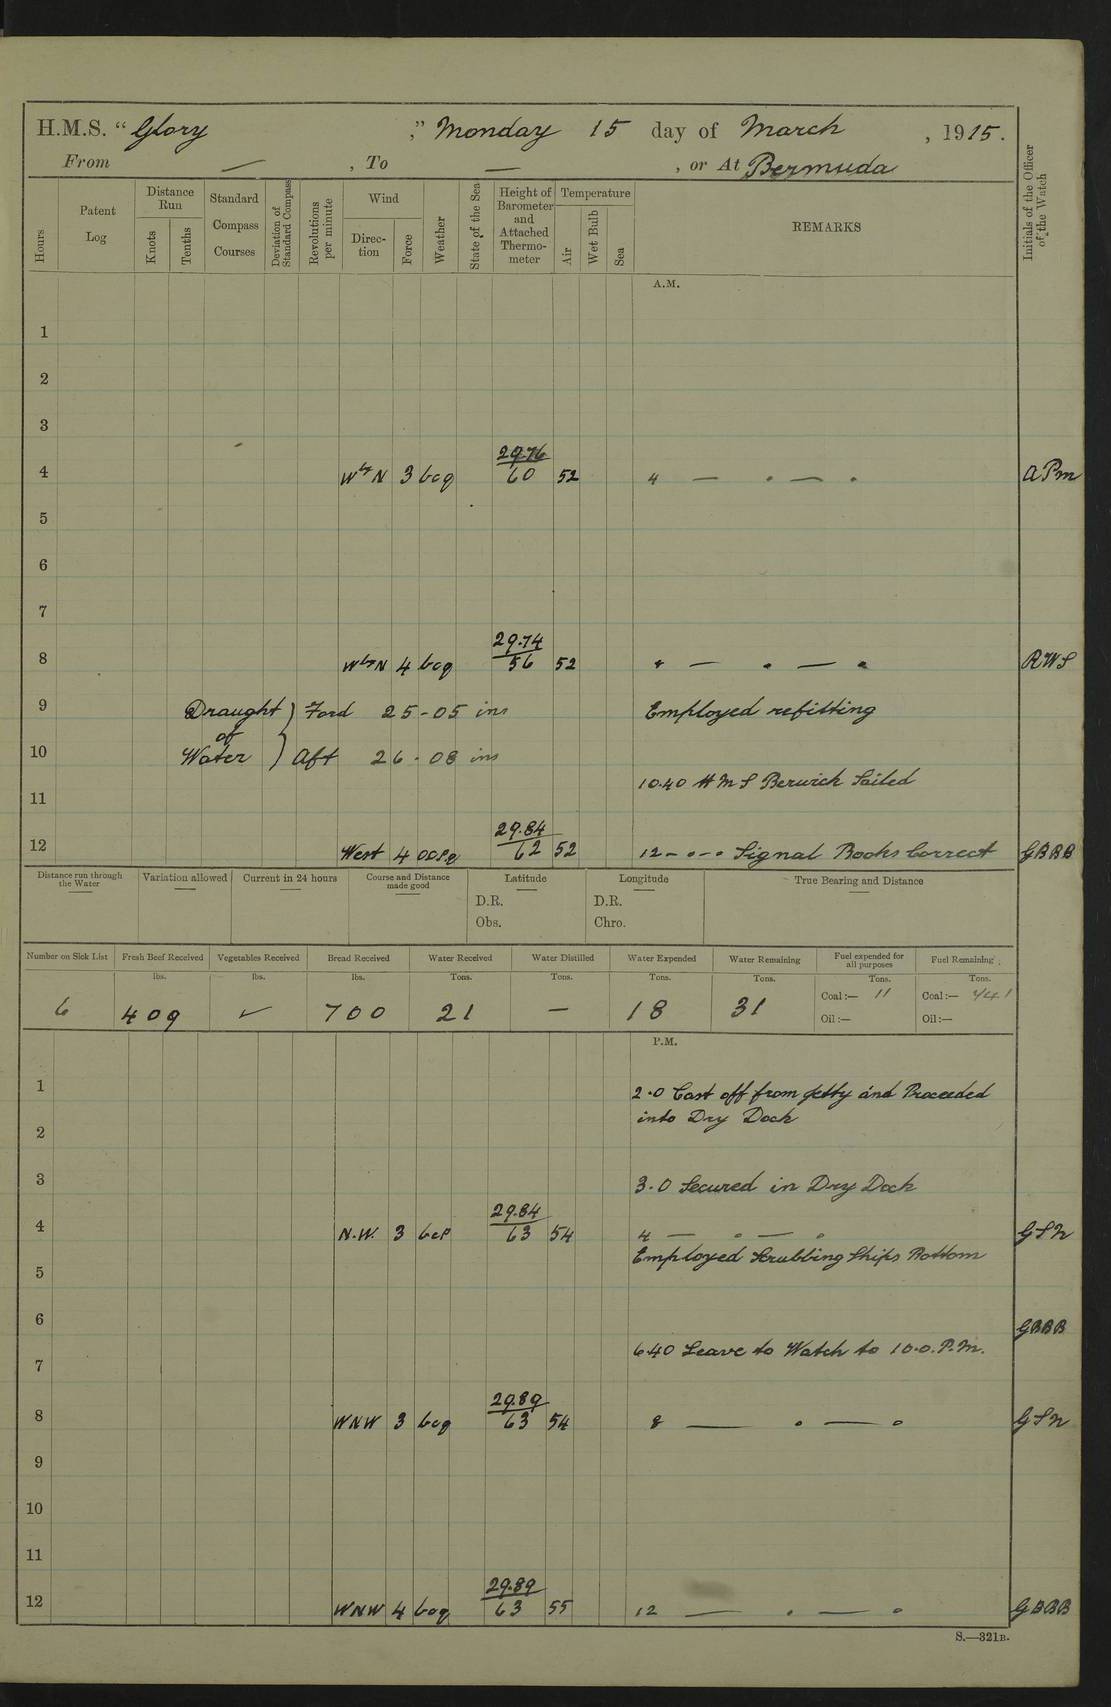 H.M.S. “Glory ,” Monday 15 day of March , 1915.
From — , To — , or At Bermuda
Hours
Patent Log
Distance Run
Knots
Tenths
Standard Compass Courses
Deviation of Standard Compass
Revolutions per minute
Wind
Direction
Force
Weather
State of the Sea
Height of Barometer and Attached Thermometer
Temperature
Air
Wet Bulb
Sea
REMARKS
Initials of the Officer of the Watch
A.M.
1
2
3
4 WbyN 3 bcq 29.76 60 52 4 — . — . APM
5
6
7
8 WbyN 4 bcq 29.74 56 52 8 — . — . RWS
9 Draught of Water } Ford 25-05 ins Employed refitting
10 Aft 26-08 ins
10.40 HMS Berwick Sailed
11
12 West 4 29.84 62 52 12 - o - o Signal Books Correct GBBB
Distance run through the Water
Variation allowed
Current in 24 hours
Course and Distance made good
Latitude
D.R.
Obs.
Longitude
D.R.
Chro.
True Bearing and Distance
Number on Sick List Fresh Beef Received Vegetables Received Bread Received Water Received Water Distilled Water Expended Water Remaining Fuel expended for all purposes Fuel Remaining
lbs. lbs. lbs. Tons. Tons. Tons. Tons. Tons. Tons.
6 409 ✓ 700 21 — 18 31 Coal:— 11 Coal:— 441
Oil:— Oil:—
P.M.
1 2.0 Cast off from Jetty and Proceeded
into Dry Dock
2
3 3.0 Secured in Dry Dock
4 N.W. 3 bcp 29.84 63 54 4 — o — o GSN
Employed Scrubbing Ships Bottom
5
6 GBBB
6.40 Leave to Watch to 10.0.P.M.
7
8 WNW 3 bcq 29.89 63 54 8 — o — o GSN
9
10
11
12 WNW 4 bcq 29.89 63 55 12 — . — o GBBB
S.—321B.